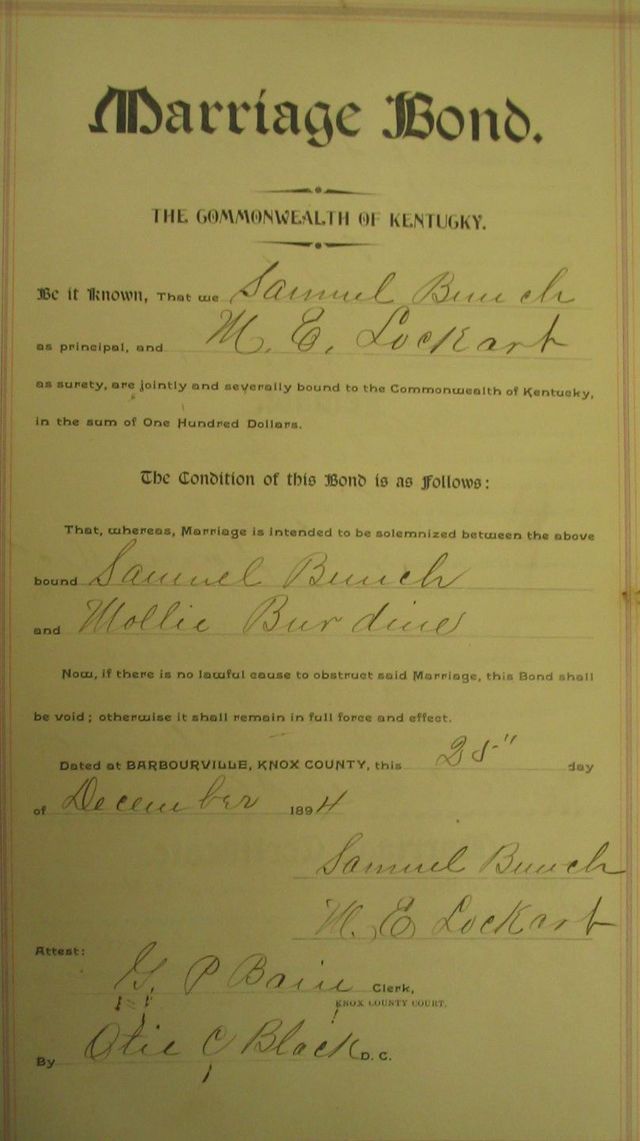 Marriage Bond.
THE COMMONWEALTH OF KENTUCKY.
Be it Known, That we Samuel Bunch
as principal, and M. E. Lockart
as surety, are jointly and severally bound to the Commonwealth of Kentucky,
in the sum of One Hundred Dollars.
The Condition of this Bond is as Follows:
That, whereas, Marriage is intended to be solemnized between the above
bound Samuel Bunch
and Mollie Burdine
Now, if there is no lawful cause to obstruct said Marriage, this Bond shall
be void; otherwise it shall remain in full force and effect.
Dated at BARBOURVILLE, KNOX COUNTY, this 25" day
of December 1894
Samuel Bunch
M. E. Lockart
Attest:
G. P Bain Clerk,
KNOX COUNTY COURT.
By Otie C Black D. C.